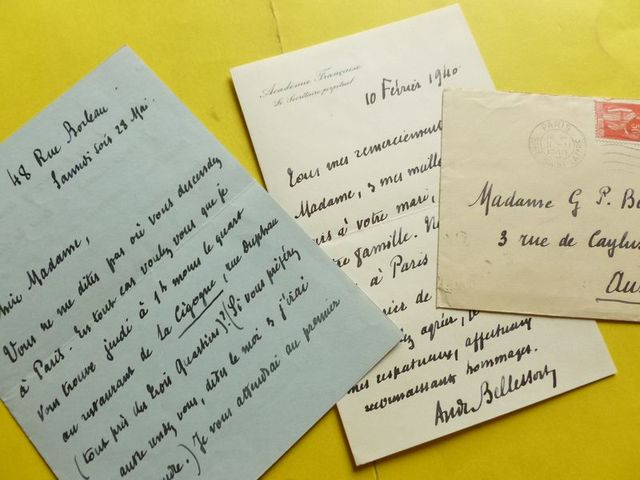 48 Rue Boileau.
Samedi soir 28 Mai.
Chère Madame,
Vous ne me dites pas où vous descendez
à Paris. En tout cas voulez vous que je
vous trouve jeudi à 1h moins le quart
au restaurant de La Cigogne, rue Duphau
(tout près des Trois Quartiers)? (Si vous préférez
autre rendez vous, dites le moi & j'irai
Je vous attendrai au premier
Académie Française
Le Secrétaire perpétuel
10 Février 1940
Tous mes remerciements
Madame, & mes meille
à votre mari,
famille.
à Paris
de
agréer,
mes respectueux, affectueux
reconnaissants hommages.
André Bellessort
PARIS
Madame G P. Be
3 rue de Caylus
Au